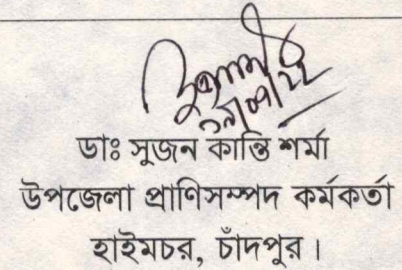 ডাঃ সুজন কান্তি শর্মা
উপজেলা প্রাণিসম্পদ কর্মকর্তা
হাইমচর, চাঁদপুর।